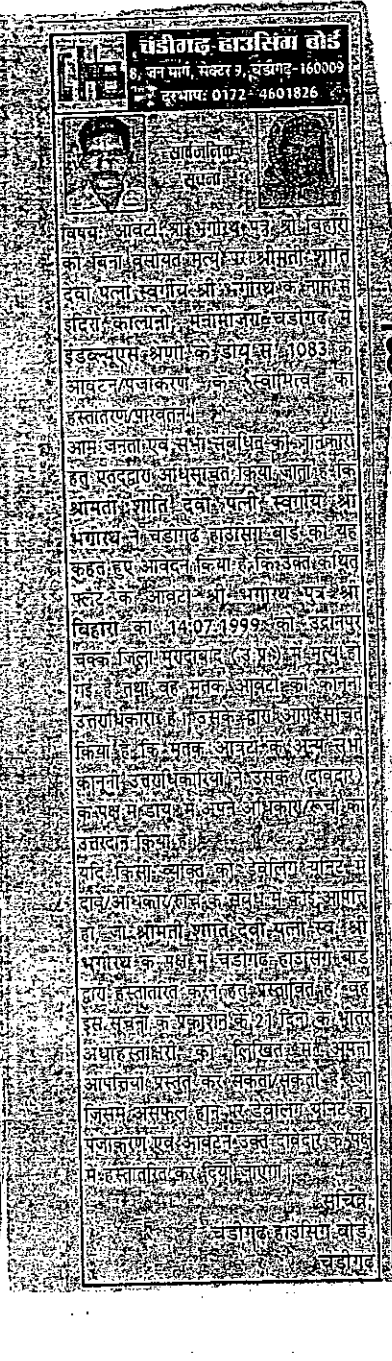 चंडीगढ़ हाउसिंग बोर्ड
8, जन मार्ग, सेक्टर 9, चंडीगढ़-160009
दूरभाष: 0172-4601826
सार्वजनिक
सूचना
विषय: आवंटी श्री भगीरथ पुत्र श्री बिहारी
की बिना वसीयत मृत्यु पर श्रीमती शांति
देवी पत्नी स्वर्गीय श्री भगीरथ के नाम में
इंदिरा कालोनी, मनीमाजरा चंडीगढ़ में
ईडब्ल्यूएस श्रेणी के डीयू सं. 1083 के
आवंटन/पंजीकरण के स्वामित्व का
हस्तांतरण/परिवर्तन।
आम जनता एवं सभी संबंधित की जानकारी
हेतु एतद्द्वारा अधिसूचित किया जाता है कि
श्रीमती शांति देवी पत्नी स्वर्गीय श्री
भगीरथ ने चंडीगढ़ हाउसिंग बोर्ड को यह
कहते हुए आवेदन किया है कि उक्त कथित
फ्लैट के आवंटी श्री भगीरथ पुत्र श्री
बिहारी का 14.07.1999 को
चक्क जिला मुरादाबाद (उ.प्र.) में मृत्यु हो
गई है तथा वह मृतक आवंटी की कानूनी
उत्तराधिकारी है। उसके द्वारा आगे सूचित
किया है कि मृतक आवंटी के अन्य सभी
कानूनी उत्तराधिकारियों ने उसके (दावेदार)
के पक्ष में डीयू में अपने अधिकारों/रूचि का
उत्तरदान किया है।
यदि किसी व्यक्ति को ड्वेलिंग यूनिट में
दावे/अधिकार/रूचि के संबंध में कोई आपत्ति
हो जो श्रीमती शांति देवी पत्नी स्व. श्री
भगीरथ के पक्ष में चंडीगढ़ हाउसिंग बोर्ड
द्वारा हस्तांतरित करने हेतु प्रस्तावित है, वह
इस सूचना के प्रकाशन के 21 दिनों के भीतर
अधोहस्ताक्षरी को लिखित में अपनी
आपत्तियां प्रस्तुत कर सकता/सकती है
जिसमें असफल होने पर ड्वेलिंग यूनिट का
पंजीकरण एवं आवंटन उक्त दावेदार के पक्ष
में हस्तांतरित कर दिया जाएगा।
सचिव,
चंडीगढ़ हाउसिंग बोर्ड,
चंडीगढ़